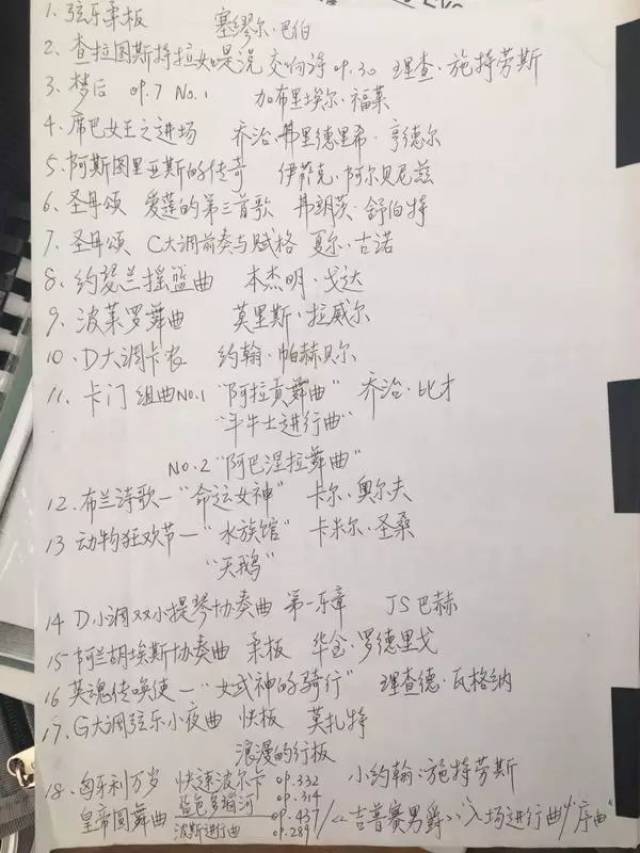 1. 弦乐柔板 塞缪尔·巴伯
2. 查拉图斯特拉如是说 交响诗 op.30 理查·施特劳斯
3. 梦后 op.7 No.1 加布里埃尔·福莱
4. 席巴女王之进场 乔治·弗里德里希·亨德尔
5. 阿斯图里亚斯的传奇 伊萨克·阿尔贝尼兹
6. 圣母颂 爱莲的第三首歌 弗朗茨·舒伯特
7. 圣母颂 C大调前奏与赋格 夏尔·古诺
8. 约瑟兰摇篮曲 本杰明·戈达
9. 波莱罗舞曲 莫里斯·拉威尔
10. D大调卡农 约翰·帕赫贝尔
11. 卡门 组曲No.1 "阿拉贡舞曲" 乔治·比才
"斗牛士进行曲"
No.2 "阿巴涅拉舞曲"
12. 布兰诗歌—"命运女神" 卡尔·奥尔夫
13 动物狂欢节—"水族馆" 卡米尔·圣桑
"天鹅"
14 D小调双小提琴协奏曲 第一乐章 JS巴赫
15 阿兰胡埃斯协奏曲 柔板 华金·罗德里戈
16 英魂传唤使—"女武神的骑行" 理查德·瓦格纳
17. G大调弦乐小夜曲 快板 莫扎特
浪漫的行板
18. 匈牙利万岁 快速波尔卡 op.332 小约翰·施特劳斯
皇帝圆舞曲 蓝色多瑙河 op.314
op.437 /《吉普赛男爵》"入场进行曲"/"序曲"
波斯进行曲 op.289